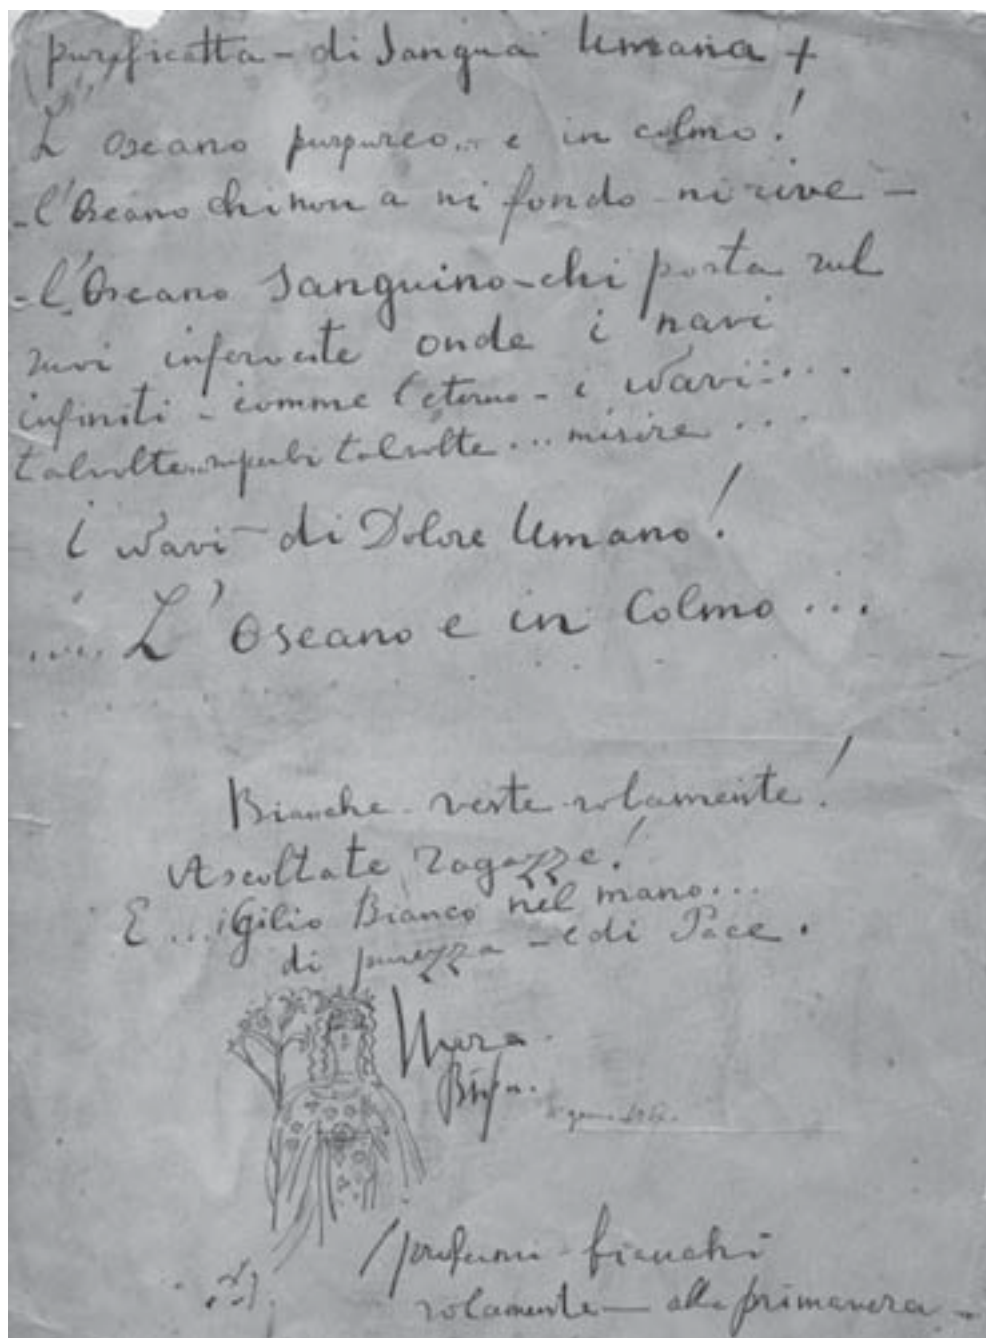 purificatta - di Sangua Umana +
L' Oseano purpureo... e in colmo!
- l'Oseano chi non a ni fondo - ni rive -
- l'Oseano Sanguino - chi porta sul
suvi infervente onde i navi
infiniti - comme l'eterno - i Navi....
talvolte talvolte ... misire ...
i Navi - di Dolore Umano!
.... L' Oseano e in Colmo ...
Bianche - veste - solamente!
Ascoltate Ragazze!
E ... i Gilio Bianco nel mano...
di purezza - e di Pace.
i profumi - bianchi
solamente - alla primavera -